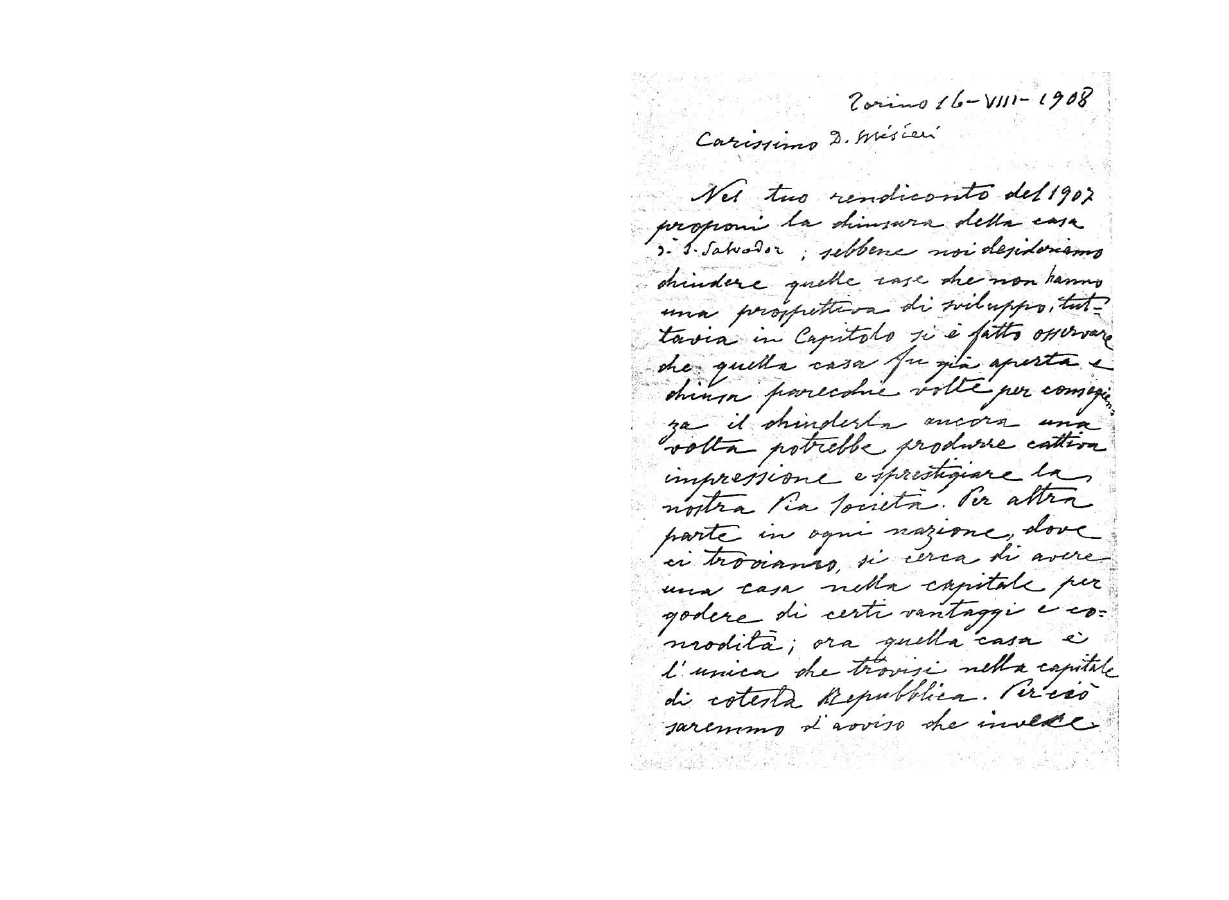 Torino 16-VIII-1908
Carissimo D. Misieri
Nel tuo rendiconto del 1907
proponi la chiusura della casa
di S. Salvador ; sebbene noi desideriamo
chiudere quelle case che non hanno
una prospettiva di sviluppo, tut=
tavia in Capitolo si è fatto osservare
che quella casa fu già aperta e
chiusa parecchie volte per conseguen=
za il chiuderla ancora una
volta potrebbe produrre cattiva
impressione e sprestigiare la
nostra Pia Società. Per altra
parte in ogni nazione, dove
ci troviamo, si cerca di avere
una casa nella capitale per
godere di certi vantaggi e co=
modità; ora quella casa è
l'unica che trovisi nella capitale
di cotesta Repubblica. Per ciò
saremmo d'avviso che invece